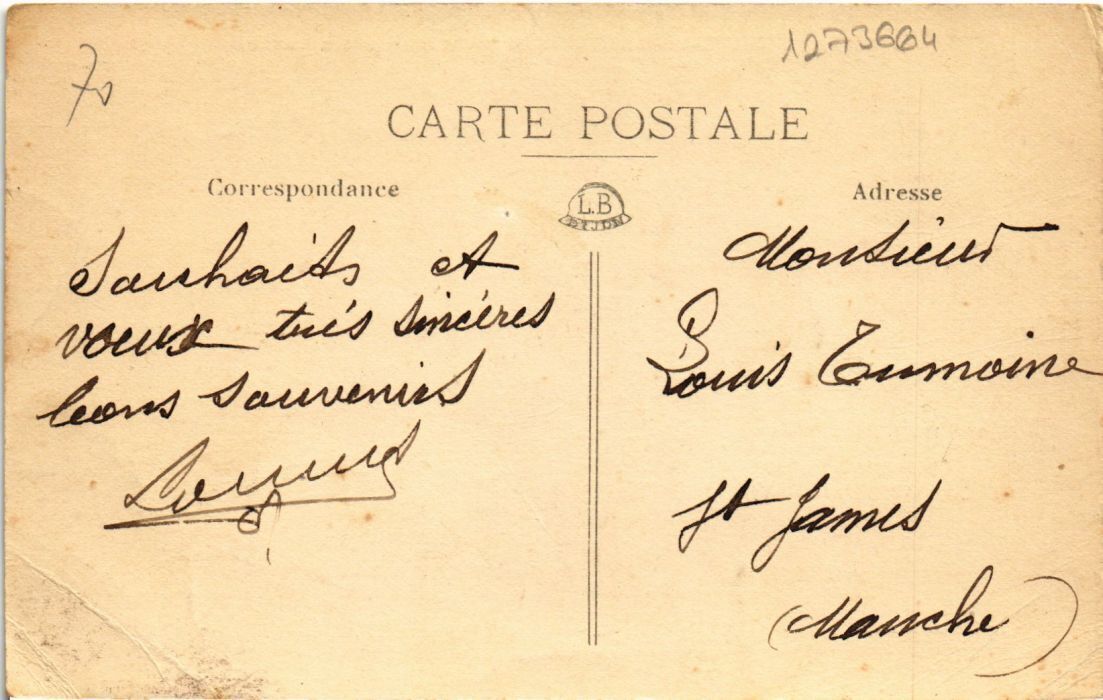 70
1273664
CARTE POSTALE
Correspondance
L.B
DIJON
Adresse
Souhaits et
voeux très sincères
bons souvenirs
Monsieur
Louis
St James
(Manche)